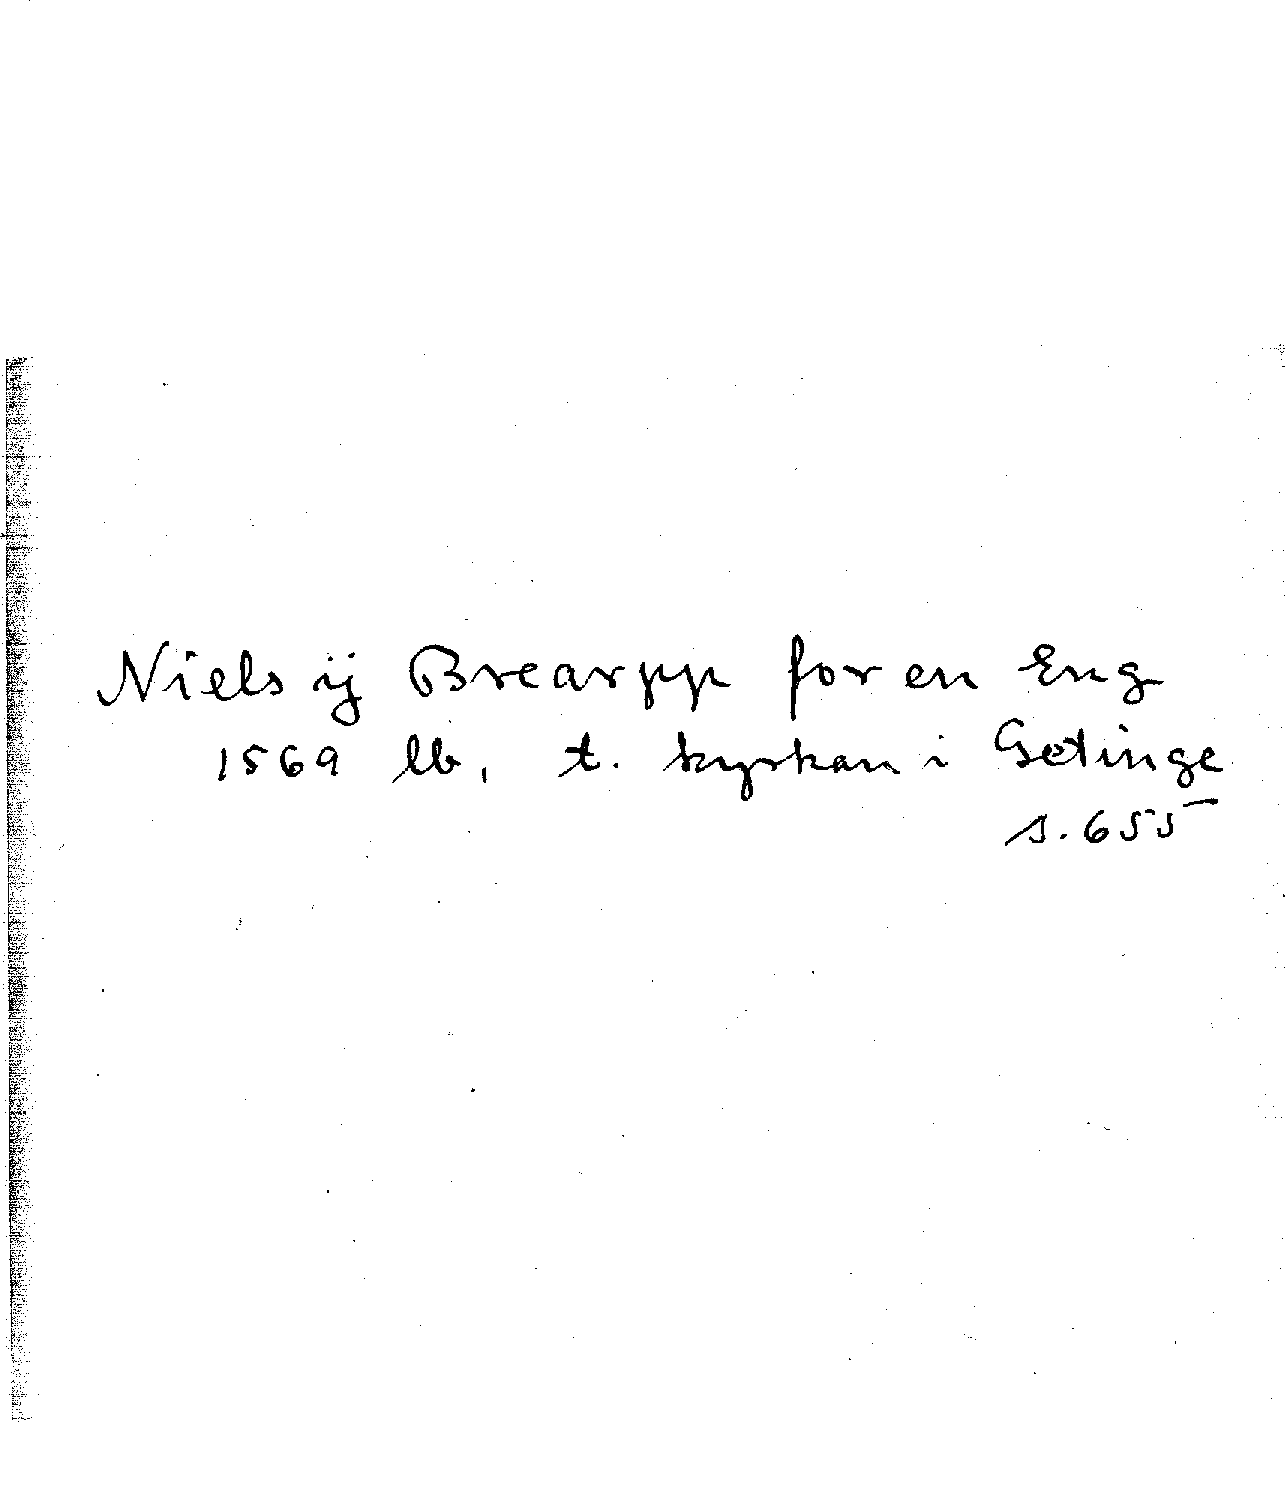 Niels ij Brearpp for en Eng
1569 lb, t. kyrkan i Getinge
s. 655